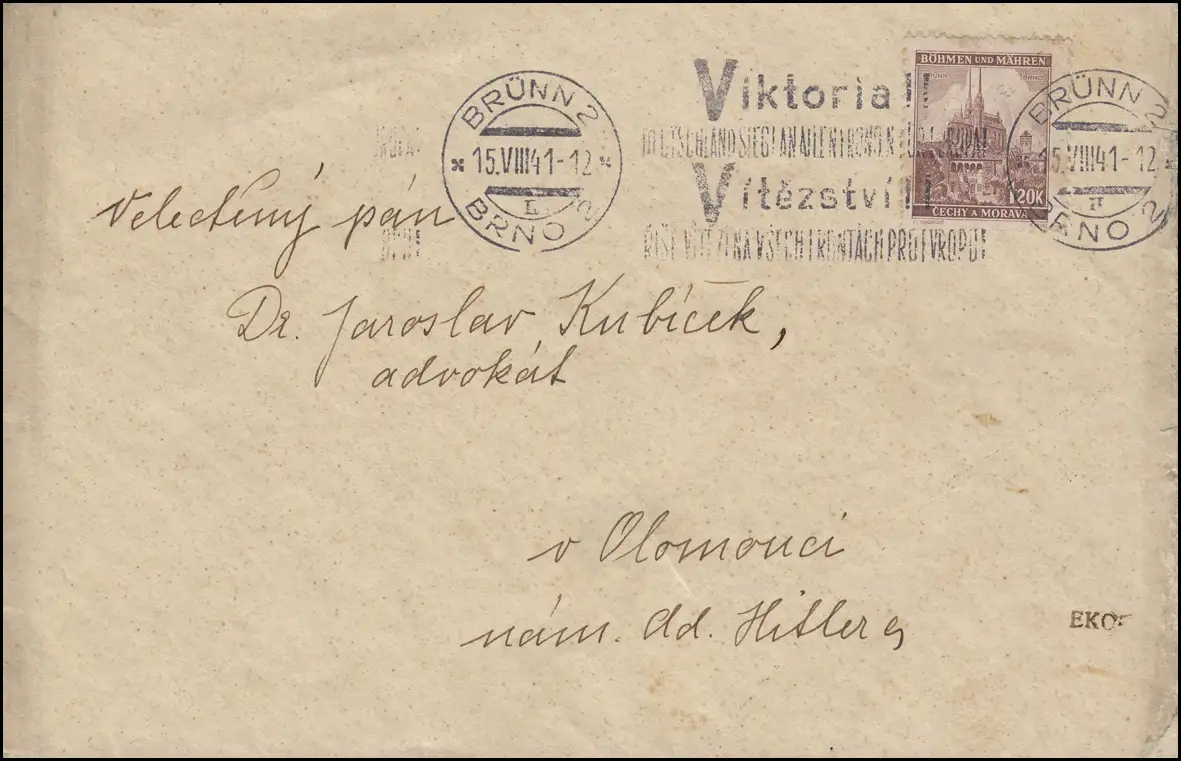 BÖHMEN UND MÄHREN
BRÜNN BRNO
1'20K
ČECHY A MORAVA
BRÜNN 2
15.VIII 41-12
BRNO 2
Viktoria!!
DEUTSCHLAND SIEGT AN ALLEN FRONTEN FÜR EUROPA!
Vítězství!!
ŘÍŠE VÍTĚZÍ NA VŠECH FRONTÁCH PRO EVROPU!
BRÜNN 2
15.VIII 41-12
BRNO 2
Velectěný pán
Dr. Jaroslav Kubíček,
advokát
v Olomouci
nám. Ad. Hitlera
EKO